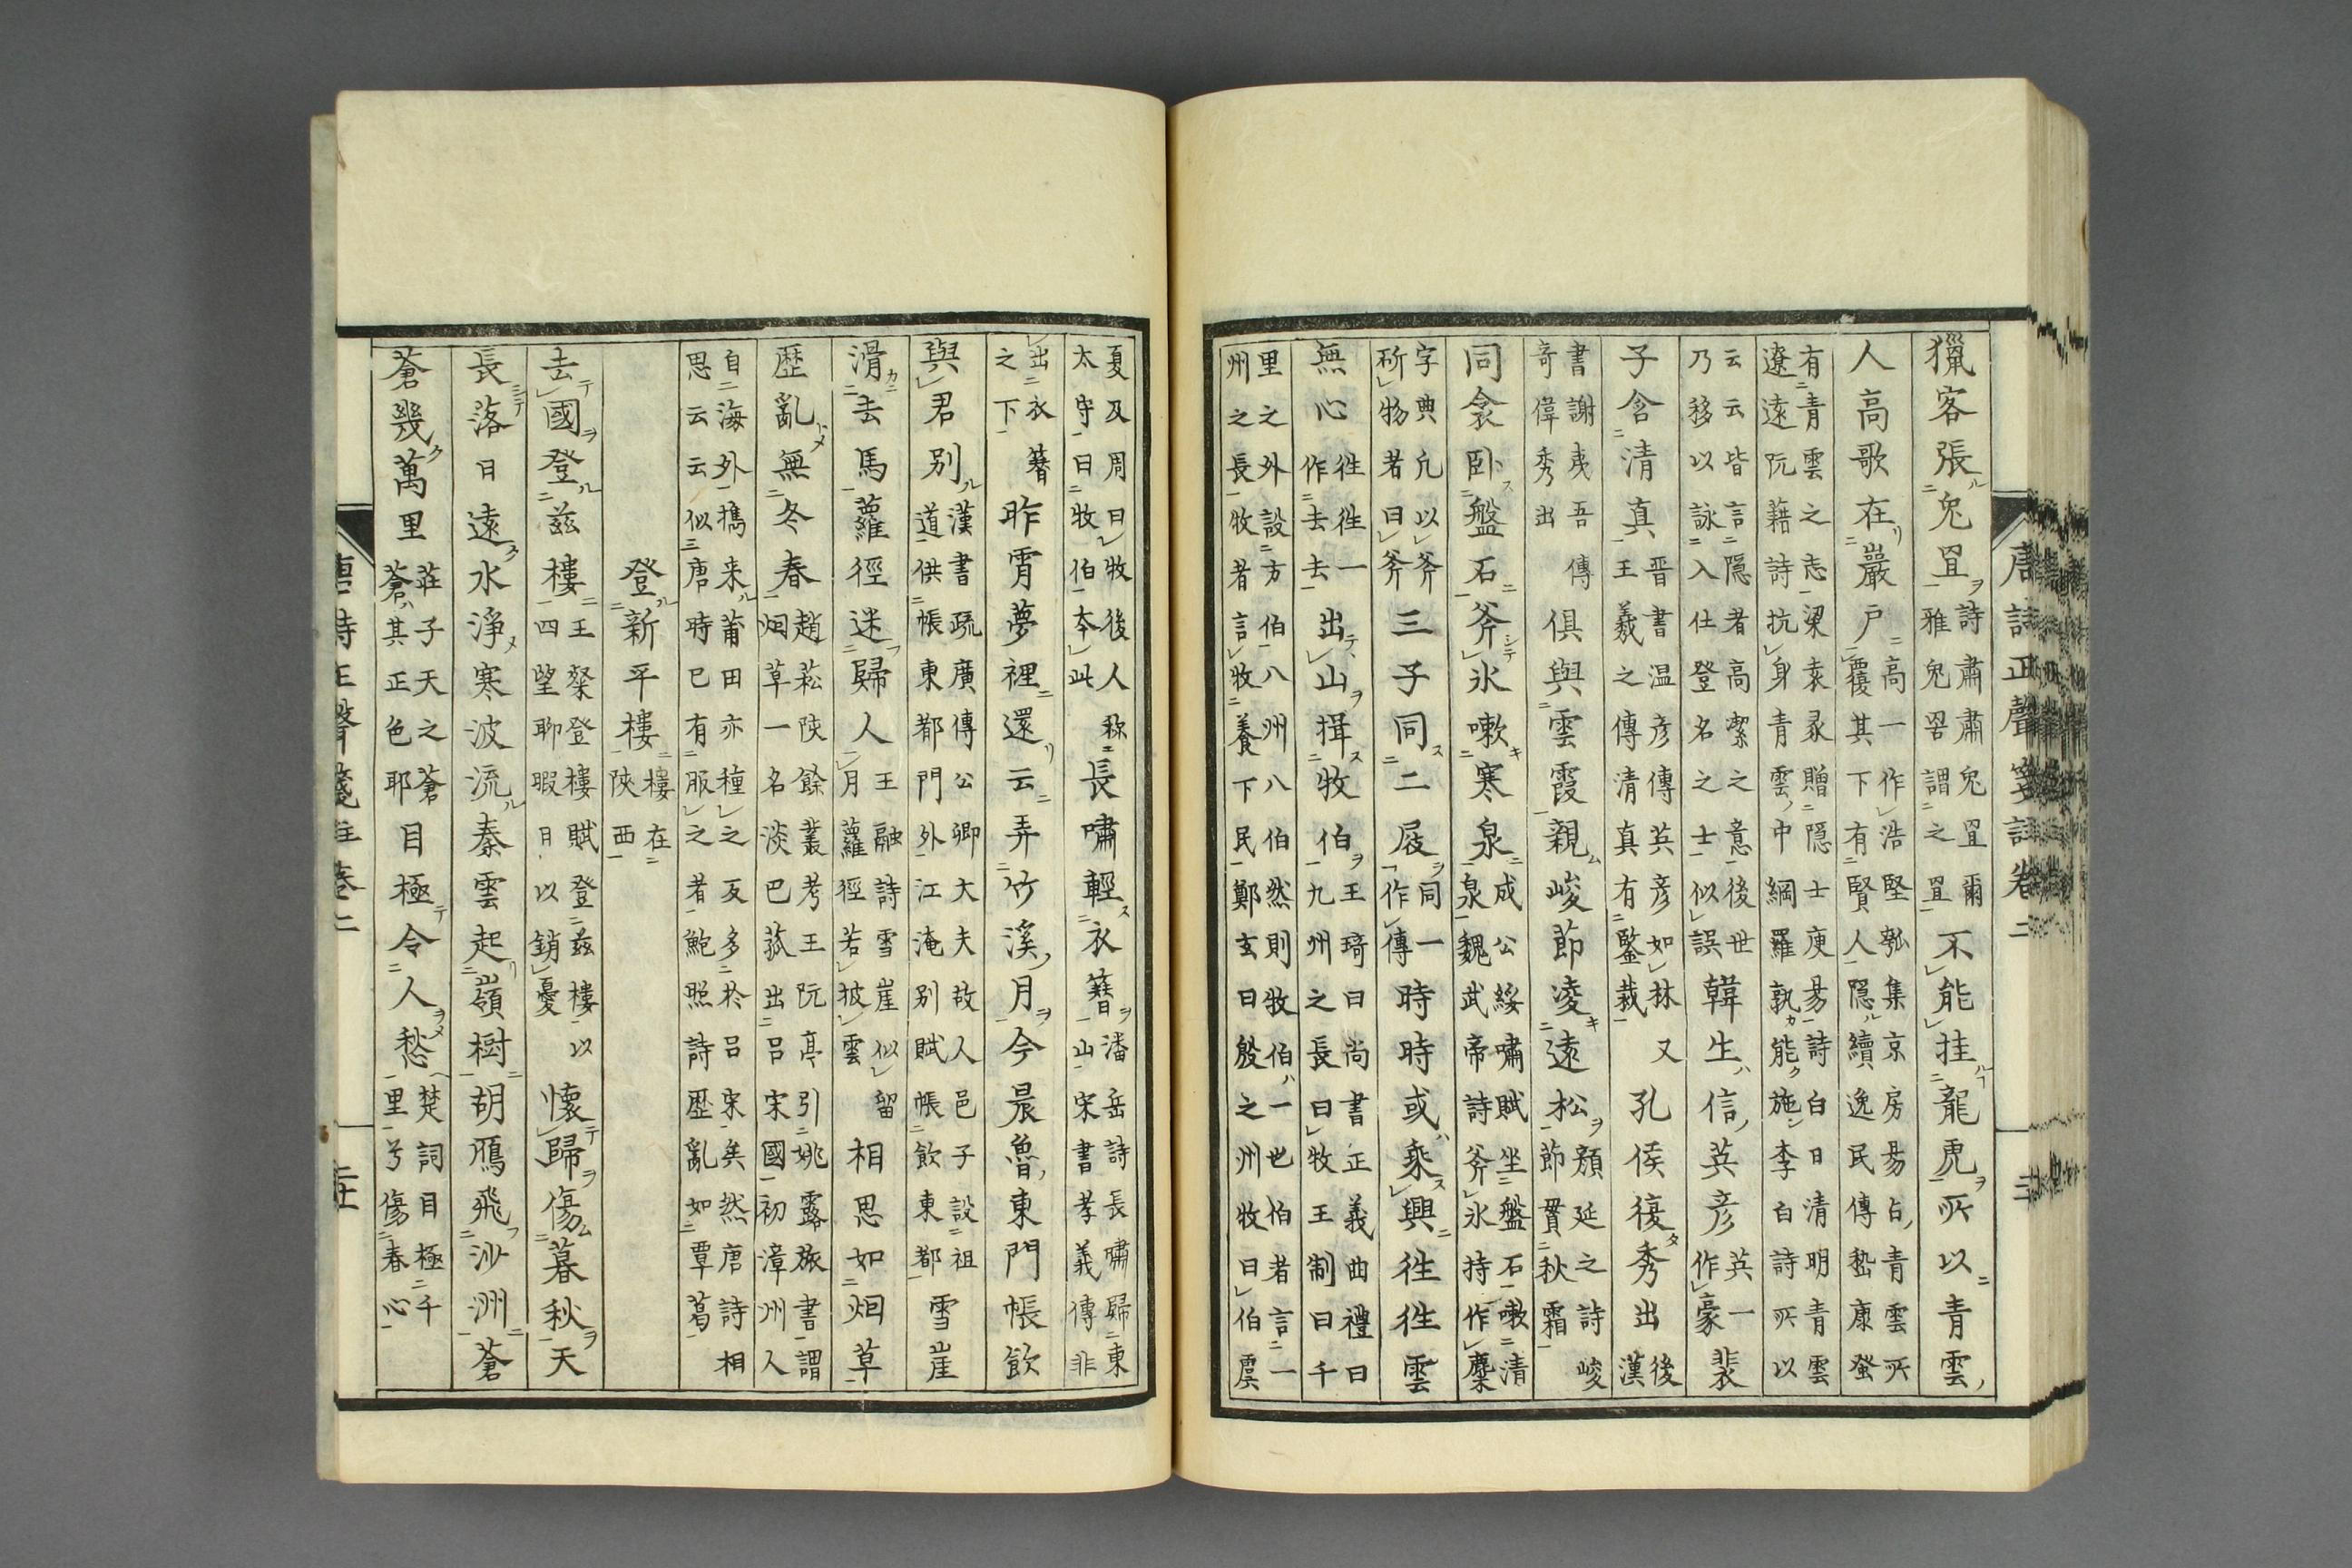 唐詩正聲箋註卷二
獵客張兎罝詩肅肅兎罝爾雅兎罟謂之罝不能挂龍虎所以青雲
人高歌在巖戸高一作浩堅瓠集京房昜占青雲所覆其下有賢人隠續逸民傳嵇康蚤
有青雲之志梁袁彖贈隠士庾昜詩白日清明青雲遼遠阮籍詩抗身青雲中綱羅孰能施李白詩所以
云云皆言隠者高潔之意後世乃移以詠入仕登名之士似誤韓生信英彦英一作豪裴
子含清真晋書温彦傳英彦如林又王羲之傳清真有鑒裁孔侯復秀出後漢
書謝夷吾傳竒偉秀出俱與雲霞親峻節凌遠松顏延之詩峻節貫秋霜
同衾卧盤石斧氷嗽寒泉成公綏嘯賦坐盤石嗽清泉魏武帝詩斧氷持作麋
字典凡以斧斫物者曰斧三子同二屐同一作傳時時或乘興徃徃雲
無心徃徃一作去去出山揖牧伯王琦曰尚書正義曲禮曰九州之長曰牧王制曰千
里之外設方伯八州八伯然則牧伯一也伯者言一州之長牧者言牧養下民鄭玄曰殷之州牧曰伯虞
夏及周曰牧後人称太守曰牧伯本此長嘯輕衣簪潘岳詩長嘯歸東山宋書孝義傳非
出衣簪之下昨宵夢裡還云弄竹溪月今晨魯東門帳飲
與君別漢書疏廣傳公卿大夫故人邑子設祖道供帳東都門外江淹別賦帳飲東都雪崖
滑去馬蘿徑迷歸人王融詩雪崖似留月蘿徑若披雲相思如烟草
歷亂無冬春趙菘陔餘叢考王阮亭引姚露旅書謂烟草一名淡巴菰出呂宋國初漳州人
自海外携来莆田亦種之反多於呂宋矣然唐詩相思云云似唐時已有服之者鮑照詩歷亂如覃葛
登新平樓樓在陜西
去國登茲樓王粲登樓賦登茲樓以四望聊暇日以銷憂懷歸傷暮秋天
長落日遠水淨寒波流秦雲起嶺樹胡鴈飛沙洲蒼
蒼幾萬里莊子天之蒼蒼其正色耶目極令人愁楚詞目極千里兮傷春心
唐詩正聲箋註卷二